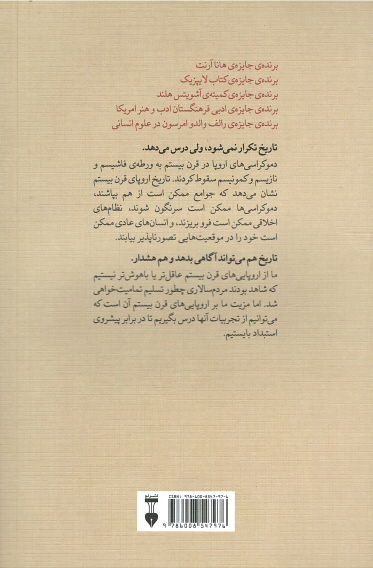 برنده‌ی جایزه‌ی هانا آرنت
برنده‌ی جایزه‌ی کتاب لایپزیک
برنده‌ی جایزه‌ی کمیته‌ی آشویتس هلند
برنده‌ی جایزه‌ی ادبی فرهنگستان ادب و هنر امریکا
برنده‌ی جایزه‌ی رالف والدو امرسون در علوم انسانی
تاریخ تکرار نمی‌شود، ولی درس می‌دهد.
دموکراسی‌های اروپا در قرن بیستم به ورطه‌ی فاشیسم و
نازیسم و کمونیسم سقوط کردند. تاریخ اروپای قرن بیستم
نشان می‌دهد که جوامع ممکن است از هم بپاشند،
دموکراسی‌ها ممکن است سرنگون شوند، نظام‌های
اخلاقی ممکن است فرو بریزند، و انسان‌های عادی ممکن
است خود را در موقعیت‌هایی تصورناپذیر بیابند.
تاریخ هم می‌تواند آگاهی بدهد و هم هشدار.
ما از اروپایی‌های قرن بیستم عاقل‌تر یا باهوش‌تر نیستیم
که شاهد بودند مردم‌سالاری چطور تسلیم تمامیت‌خواهی
شد. اما مزیت ما بر اروپایی‌های قرن بیستم آن است که
می‌توانیم از تجربیات آنها درس بگیریم تا در برابر پیشروی
استبداد بایستیم.
ISBN: 978-600-8547-97-6
نشر نو
9 786008 547976